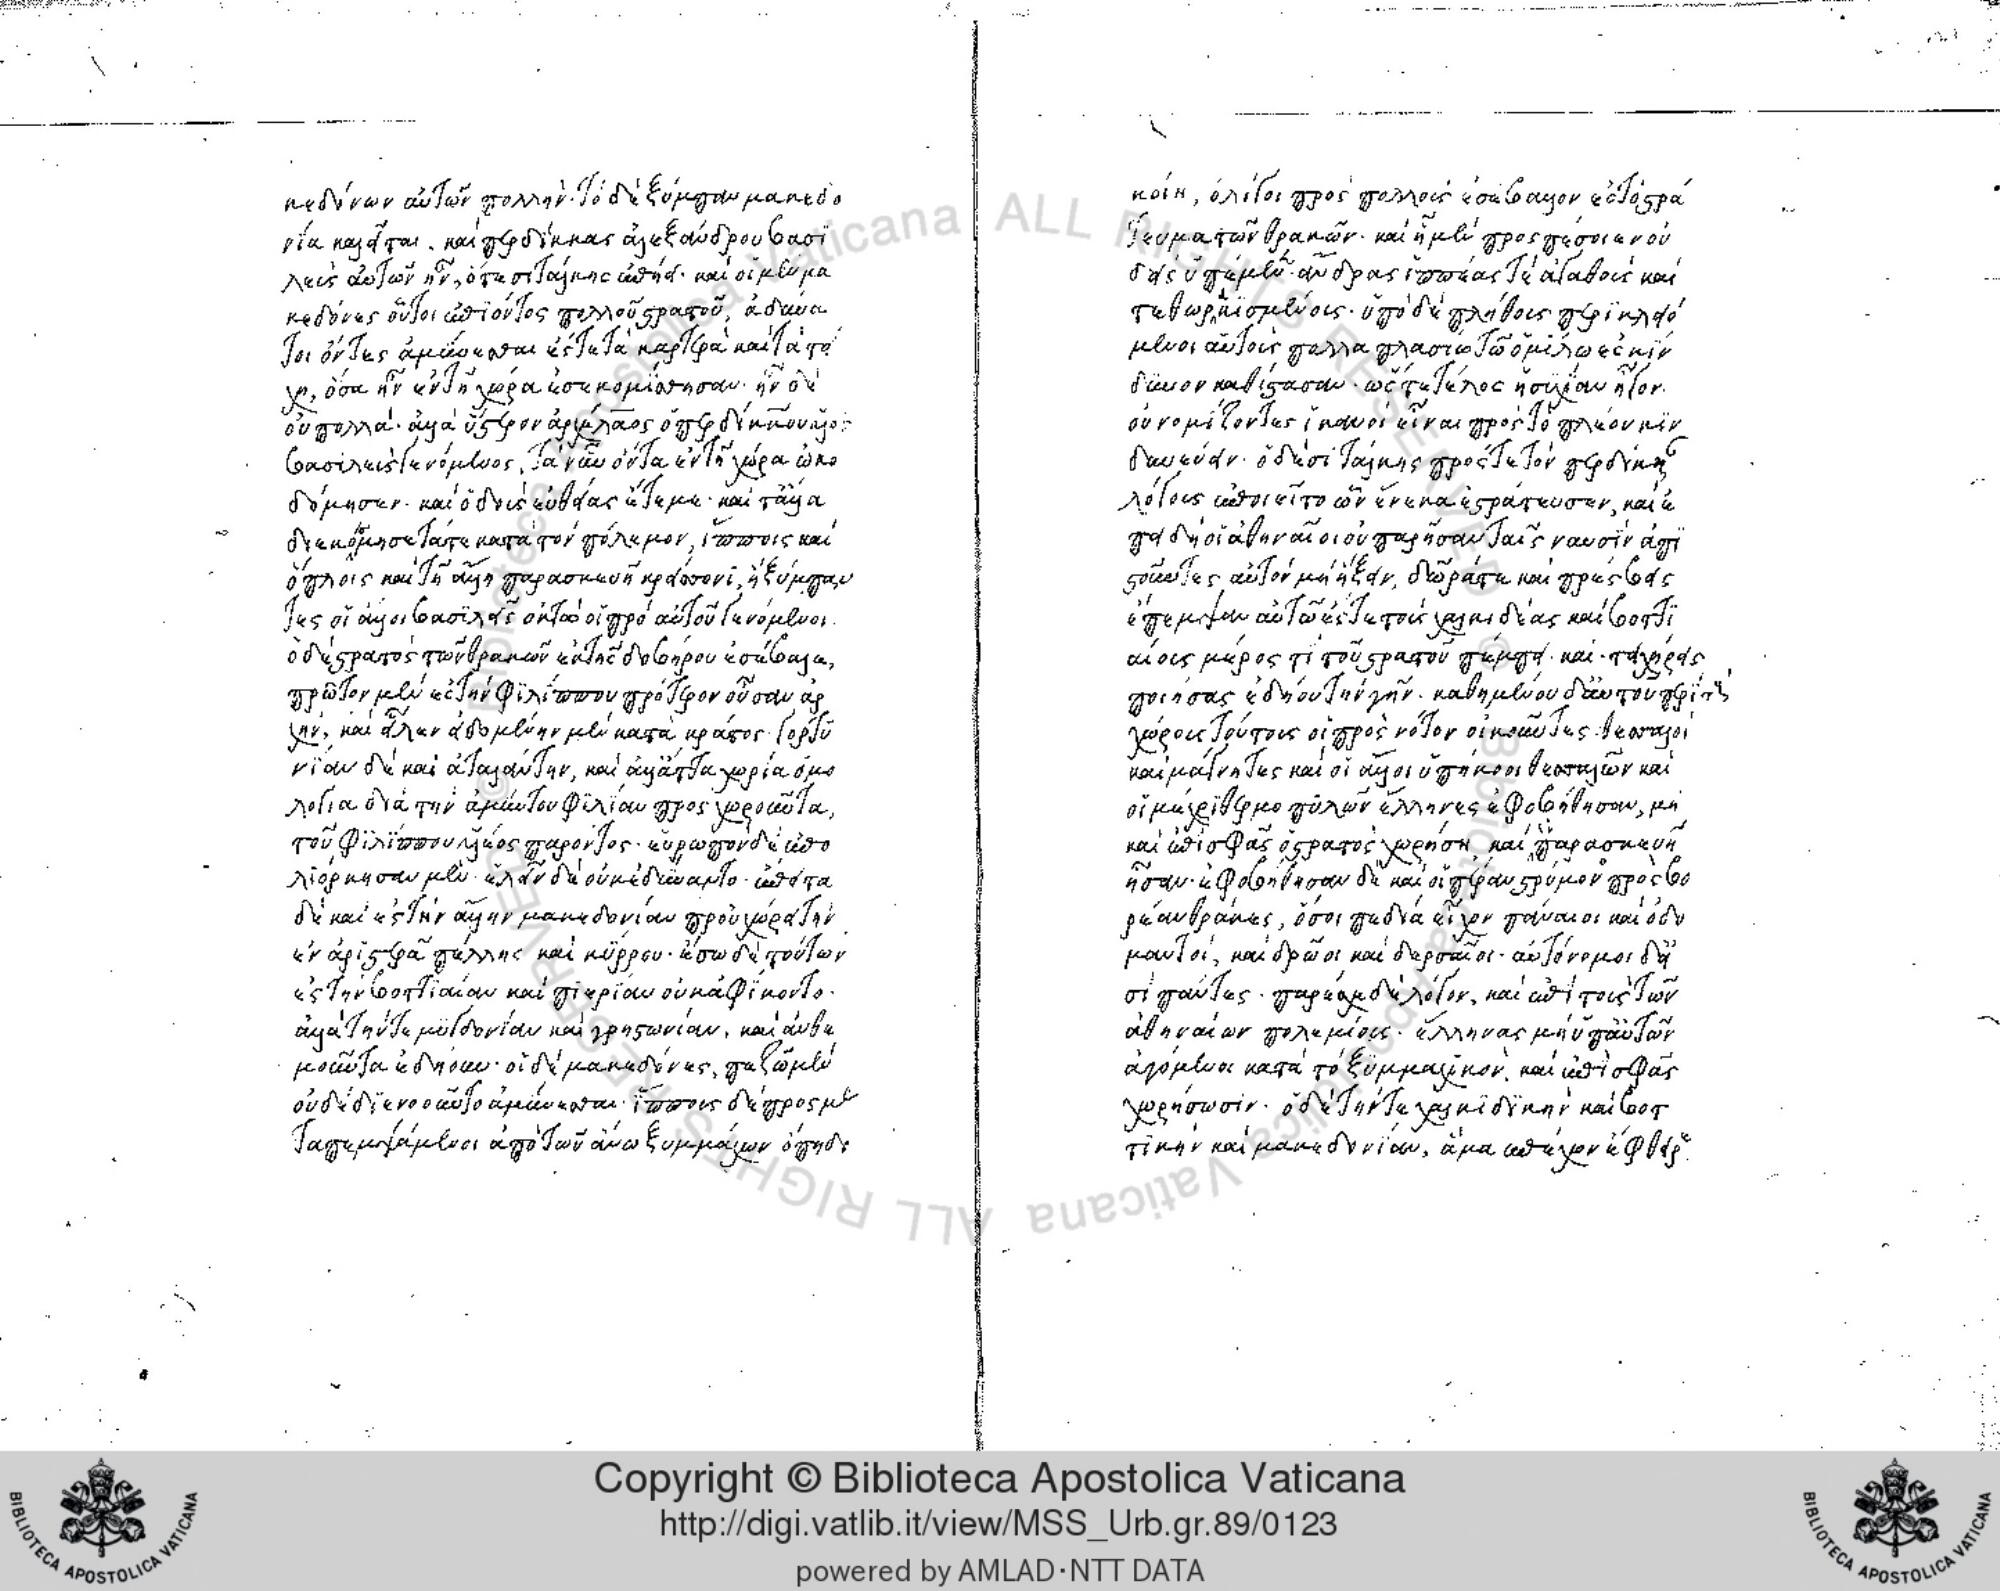 κεδόνων αὐτῶν πολλήν· τὸ δὲ ξύμπαν μακεδο
νία καλεῖται. καὶ περδίκκας ἀλεξάνδρου βασι
λεὺς αὐτῶν ἦν, ὅτε σιτάλκης ἐπήει· καὶ οἱ μὲν μα
κεδόνες οὗτοι ἐπιόντος πολλοῦ στρατοῦ, ἀδύνα
τοι ὄντες ἀμύνεσθαι ἔς τε τὰ καρτερὰ καὶ τὰ τεί
χη, ὅσα ἦν ἐν τῆ χώρα ἐσεκομίσθησαν· ἦν δὲ
οὐ πολλά· ἀλλὰ ὕστερον ἀρχέλαος ὁ περδίκκου υἱὸς
βασιλεὺς γενόμενος, τὰ νῦν ὄντα ἐν τῆ χώρα ὠκο
δόμησεν· καὶ ὁδοὺς εὐθείας ἔτεμε· καὶ τἄλλα
διεκόσμησε τά τε κατὰ τὸν πόλεμον, ἵπποις καὶ
ὅπλοις καὶ τῆ ἄλλη παρασκευῆ κρείσσονι, ἢ ξύμπαν
τες οἱ ἄλλοι βασιλεῖς ὀκτὼ οἱ πρὸ αὐτοῦ γενόμενοι.
ὁ δὲ στρατὸς τῶν θρακῶν ἐκ τῆς δοβήρου ἐσέβαλε,
πρῶτον μὲν ἐς τὴν φιλίππου πρότερον οὖσαν ἀρ
χήν, καὶ εἷλεν εἰδομένην μὲν κατὰ κράτος· γορτυ
νίαν δὲ καὶ ἀταλάντην, καὶ ἄλλα ἄττα χωρία ὁμο
λογία διὰ τὴν ἀμύντου φιλίαν προσχωροῦντα,
τοῦ φιλίππου υἱέος παρόντος· εὐρωπὸν δὲ ἐπο
λιόρκησαν μὲν· ἑλεῖν δὲ οὐκ ἐδύναντο· ἔπειτα
δὲ καὶ ἐς τὴν ἄλλην μακεδονίαν προὐχώρει τὴν
ἐν ἀριστερᾶ πέλλης καὶ κύρρου· ἔσω δὲ τούτων
ἐς τὴν βοττιαίαν καὶ πιερίαν οὐκ ἀφίκοντο·
ἀλλὰ τήν τε μυγδονίαν καὶ γρηστωνίαν, καὶ ἀνθε
μοῦντα ἐδήουν· οἱ δὲ μακεδόνες, πεζῶ μὲν
οὐδὲ διενοοῦντο ἀμύνεσθαι· ἵπποις δὲ προσμε
ταπεμψάμενοι ἀπὸ τῶν ἄνω ξυμμάχων ὅπη δο
κοίη, ὀλίγοι πρὸς πολλοὺς ἐσέβαλλον ἐς τὸ στρά
τευμα τῶν θρακῶν· καὶ ἧ μὲν προσπέσοιεν οὐ
δεὶς ὑπέμεν· ἄνδρας ἱππέας τὲ ἀγαθοὺς καὶ
τεθωρακισμένους· ὑπὸ δὲ πλήθους περικλειό
μενοι αὐτοὺς πολλαπλασίω τῶ ὁμίλω ἐς κίν
δυνον καθίστασαν· ὥστε τέλος ἡσυχίαν ἦγον·
οὐ νομίζοντες ἱκανοὶ εἶναι πρὸς τὸ πλέον κιν
δυνεύειν· ὁ δὲ σιτάλκης πρός τε τὸν περδίκκ
λόγους ἐποιεῖτο ὧν ἕνεκα ἐστράτευσεν, καὶ ἐ
πειδὴ οἱ ἀθηναῖοι οὐ παρῆσαν ταῖς ναυσὶν ἀπι
στοῦντες αὐτὸν μὴ ἥξειν, δῶρά τε καὶ πρέσβεις
ἔπεμψαν αὐτῶ ἔς τε τοὺς χαλκιδέας καὶ βοττι
αίους μέρος τι τοῦ στρατοῦ πέμπει· καὶ τειχήρεις
ποιήσας ἐδήου τὴν γῆν· καθημένου δ' αὐτοῦ περὶ τοὺς
χώρους τούτους οἱ πρὸς νότον οἰκοῦντες θεσσαλοὶ
καὶ μάγνητες καὶ οἱ ἄλλοι ὑπήκοοι θεσσαλῶν καὶ
οἱ μέχρι θερμοπυλῶν ἕλληνες ἐφοβήθησαν, μὴ
καὶ ἐπὶ σφᾶς ὁ στρατὸς χωρήση, καὶ ἐν παρασκευῆ
ἦσαν· ἐφοβήθησαν δὲ καὶ οἱ πέραν στρυμόνος πρὸς βο
ρέαν θρᾶκες, ὅσοι πεδία εἶχον παναῖοι καὶ ὀδο
μαντοί, καὶ δρῶοι καὶ δερσαῖοι· αὐτόνομοι δ' εἰ
σὶ πάντες· παρέσχε δὲ λόγον, καὶ ἐπὶ τοὺς τῶν
ἀθηναίων πολεμίους· ἕλληνας μὴ ὑπ' αὐτῶν
ἀγόμενοι κατὰ τὸ ξυμμαχικὸν, καὶ ἐπὶ σφᾶς
χωρήσωσιν· ὁ δὲ τήν τε χαλκιδικὴν καὶ βοτ
τικὴν καὶ μακεδονίαν, ἅμα ἐπέχων ἔφθειρε
Copyright © Biblioteca Apostolica Vaticana
http://digi.vatlib.it/view/MSS_Urb.gr.89/0123
powered by AMLAD·NTT DATA
BIBLIOTECA APOSTOLICA VATICANA
BIBLIOTECA APOSTOLICA VATICANA
© Biblioteca Apostolica Vaticana ALL RIGHTS RESERVED © Biblioteca Apostolica Vaticana ALL RIGHTS RESERVED